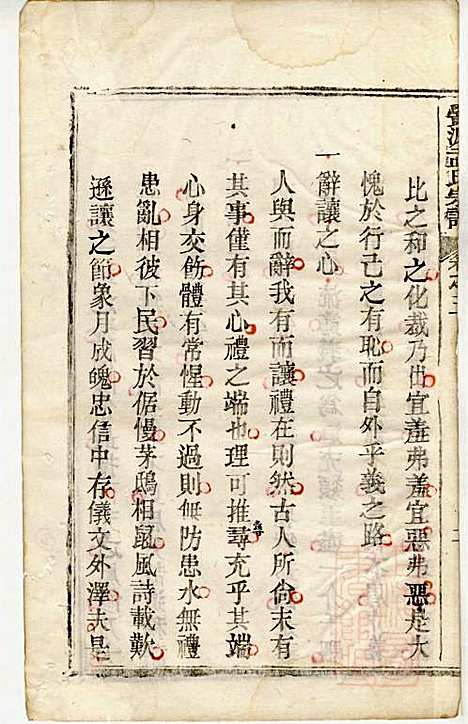 比之和之化裁乃出宜羞弗羞宜惡弗惡是大
愧於行己之有恥而自外乎義之路
一辭讓之心
人與而辭我有而讓禮在則然古人所尙未有
其事僅有其心禮之端也理可推尋充乎其端
心身交飭體有常惺動不過則無防患水無禮
患亂相彼下民習於倨慢茅鴟相鼠風詩載歎
遜讓之節象月成魄忠信中存儀文外澤夫是